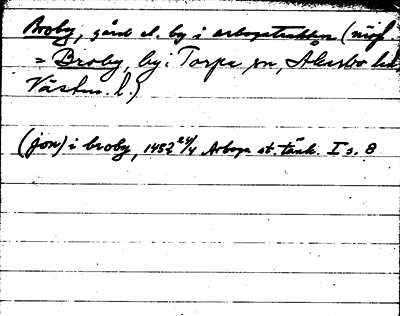 Broby, gård el. by i arbogatrakten (möjl.
= Broby, by i Torpa sn, Åkerbo hd,
Västm. l.)
(jon) i broby, 1452 24/4 Arboga st. tänk. I s. 8